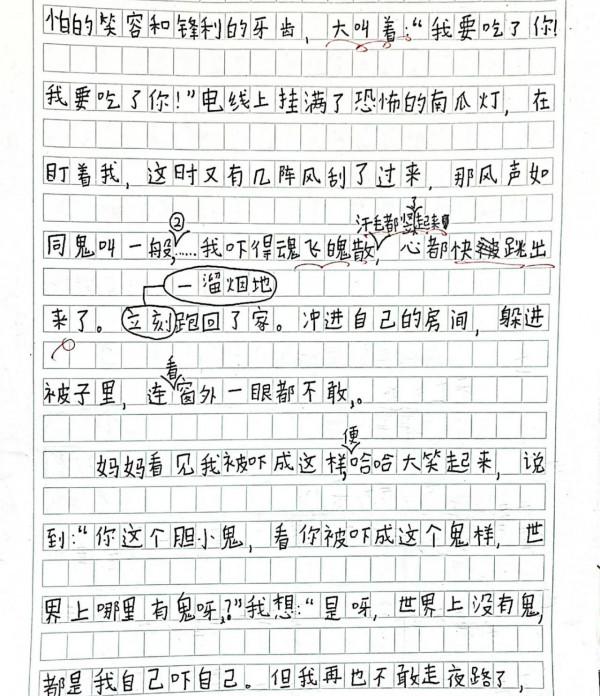 怕的笑容和锋利的牙齿，大叫着：“我要吃了你！
我要吃了你！”电线上挂满了恐怖的南瓜灯，在
盯着我，这时又有几阵风刮了过来，那风声如
② 汗毛都竖起来了
同鬼叫一般，……我吓得魂飞魄散，心都快被跳出
一溜烟地
来了。立刻跑回了家。冲进自己的房间，躲进
看
被子里，连窗外一眼都不敢，。
便
妈妈看见我被吓成这样，哈哈大笑起来，说
到：“你这个胆小鬼，看你被吓成这个鬼样，世
界上哪里有鬼呀，？”我想：“是呀，世界上没有鬼，
都是我自己吓自己。但我再也不敢走夜路了，